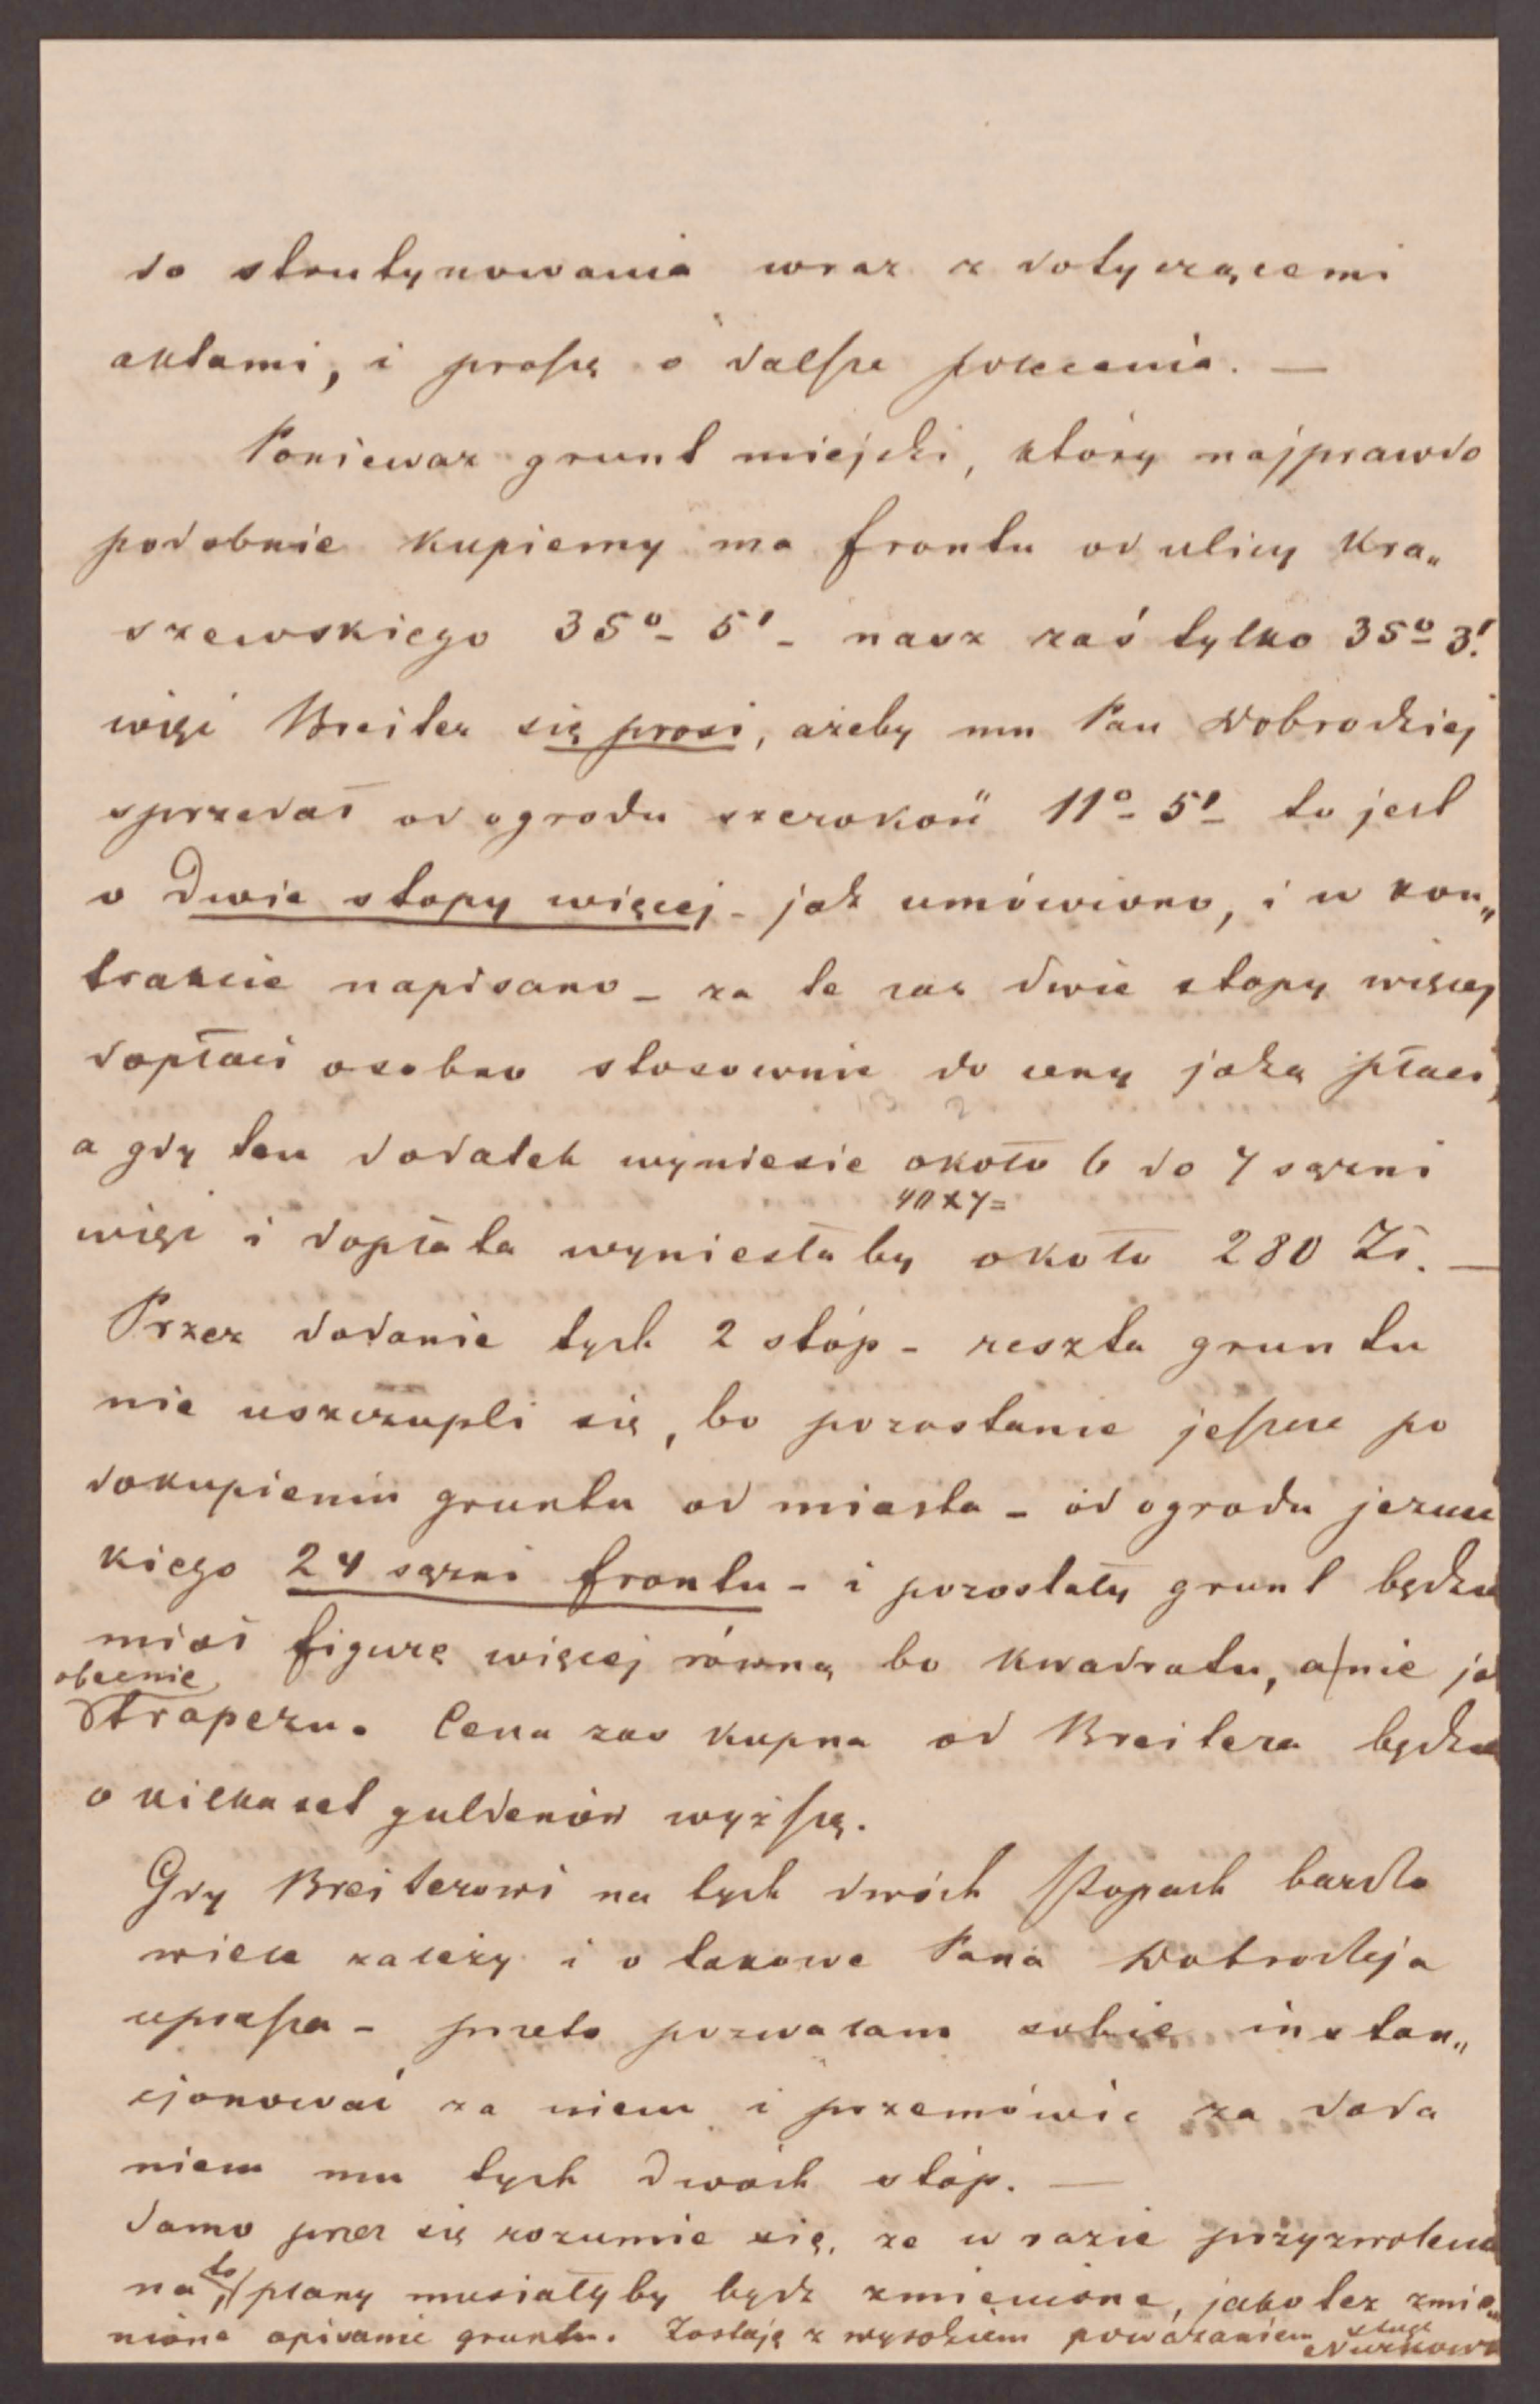 do skrutynowania wraz z dotyczącemi
aktami, i proszę o dalsze polecenia. —
Ponieważ grunt miejski, który najprawdo
podobnie kupiemy ma frontu od ulicy Kra„
szewskiego 35º- 5' - nasz zaś tylko 35º 3'.
więc Breiter się prosi, ażeby mu Pan Dobrodziej
sprzedał od ogrodu szerokość 11º- 5' to jest
o Dwie stopy więcej - jak umówiono, i w kon„
trakcie napisano - za te zaś dwie stopy więcej
dopłaci osobno stosownie do ceny jaką płaci,
a gdy ten dodatek wyniesie około 6 do 7 sążni
40 x 7 =
więc i dopłata wyniesłaby około 280 Zł. —
Przez dodanie tych 2 stóp - reszta gruntu
nie uszczupli się, bo pozostanie jeszcze po
dokupieniu gruntu od miasta - od ogrodu jezuic
kiego 24 sążni frontu - i pozostały grunt będzie
miał figurę więcej równą bo kwadratu, a nie ja
obecnie
trapezu. Cena zaś kupna od Breitera będzie
o kilkaset guldenów wyższą.
Gdy Breiterowi na tych dwóch stopach bardzo
wiele zależy i o takowe Pana Dobrodzieja
uprasza - przeto pozwalam sobie instan„
cjonować za niem i przemówić za doda
niem mu tych dwóch stóp. —
Samo przez się rozumie się, że w razie przyzwolenia
na to, plany musiałyby bydź zmienione, jako też zmie„
nione opisanie gruntu. Zostaję z wysokiem poważaniem sługa